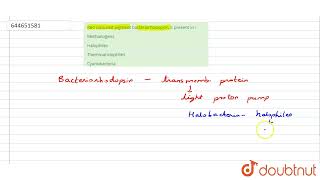 644651581
Red coloured pigment bacteriorhodopsin, is present in :
Methanogens
Halophiles
Thermoacidophiles
Cyanobacteria
Bacteriorhodopsin – transmembr protein
light proton pump
Halobacteria – halophiles
doubtnut